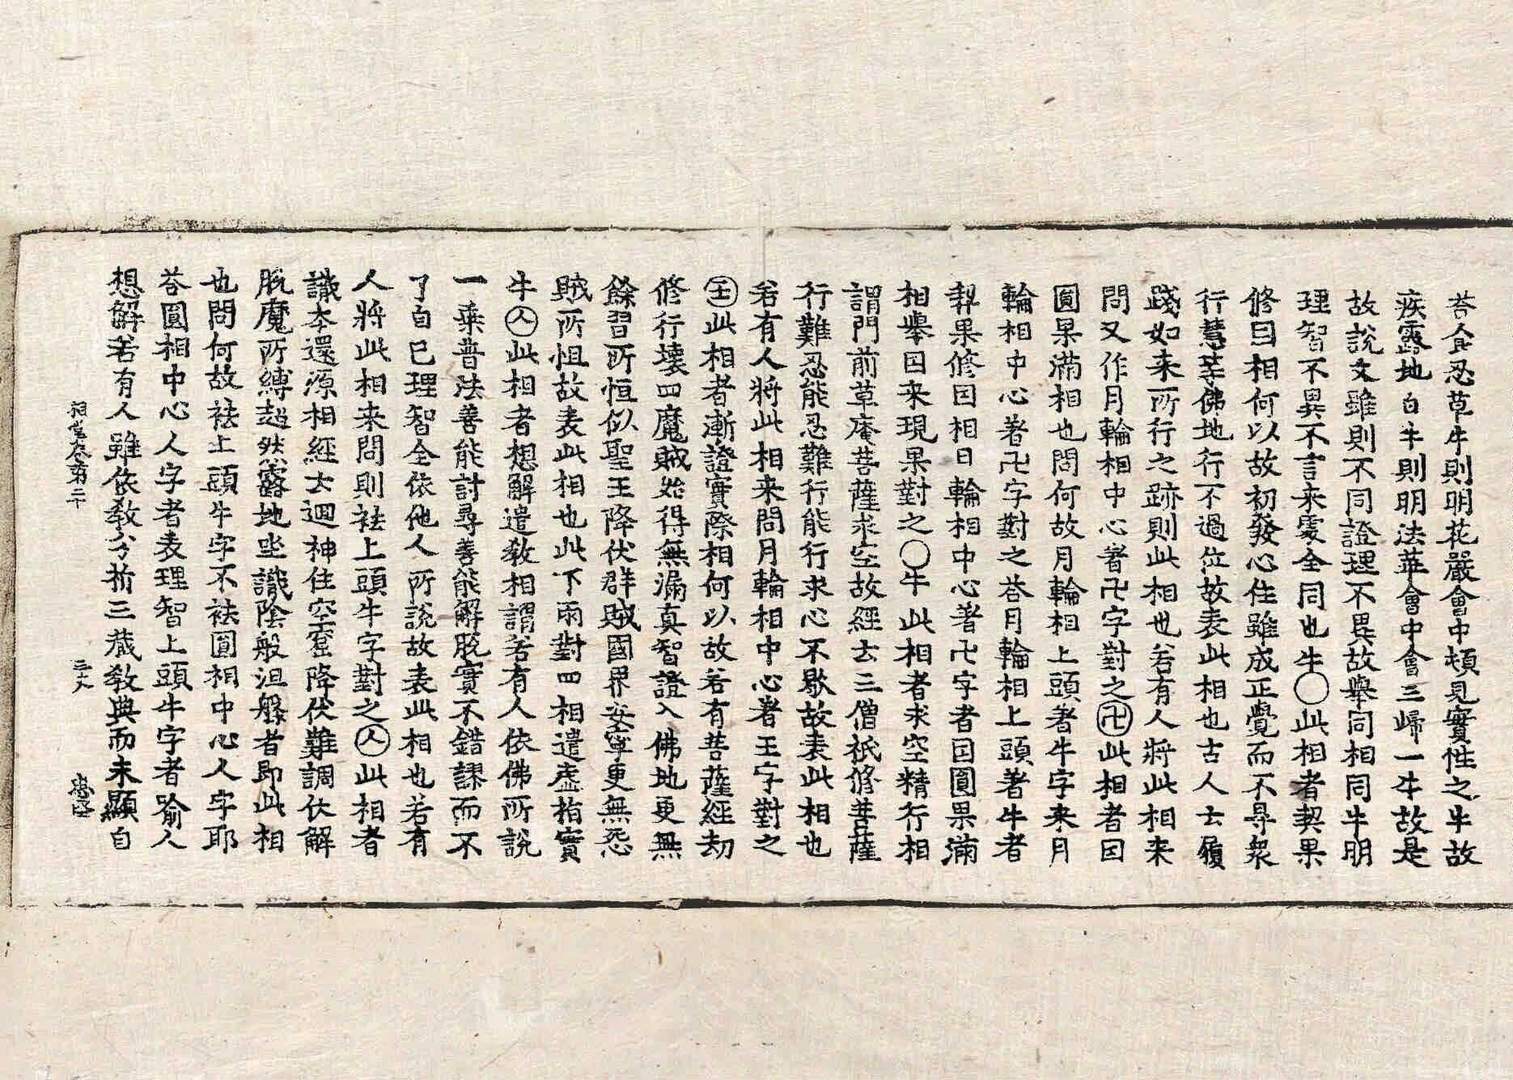 若食忍草牛則明花嚴會中頓見實性之牛故
疾露地白牛則明法華會中會三歸一牛故是
故說文雖則不同證理不異故舉同相同牛明
理智不異不言來處全同也牛〇此相者契果
修因相何以故初發心住雖成正覺而不㝵衆
行慧等佛地行不過位故表此相也古人士履
踐如来所行之跡則此相也若有人將此相来
問又作月輪相中心著卍字對之㊉此相者因
圓果滿相也問何故月輪相上頭著牛字来月
輪相中心著卍字對之荅月輪相上頭著牛者
契果修因相日輪相中心著卍字者因圓果滿
相舉因来現果對之〇牛此相者求空精行相
謂門前草庵菩薩求空故經云三僧祇修菩薩
行難忍能忍難行能行求心不歇故表此相也
若有人將此相来問月輪相中心著王字對之
王此相者漸證實際相何以故若有菩薩經劫
修行壞四魔賊始得無漏真智證入佛地更無
餘習所恒似聖王降伏群賊國界安寧更無怨
賊所怛故表此相也此下兩對四相遣虛指實
牛人此相者想解遣敎相謂若有人依佛所說
一乘普法善能討尋善能解脫實不錯謬而不
了自已理智全依他人所說故表此相也若有
人將此相来問則袪上頭牛字對之人此相者
識本還源相經云迴神住空窟降伏難調伏解
脫魔所縛超然露地坐識陰般涅槃者即此相
也問何故袪上頭牛字不袪圓相中心人字耶
荅圓相中心人字者表理智上頭牛字者喻人
想解若有人雖依敎分析三藏敎典而未顯自
祖堂卷第二十